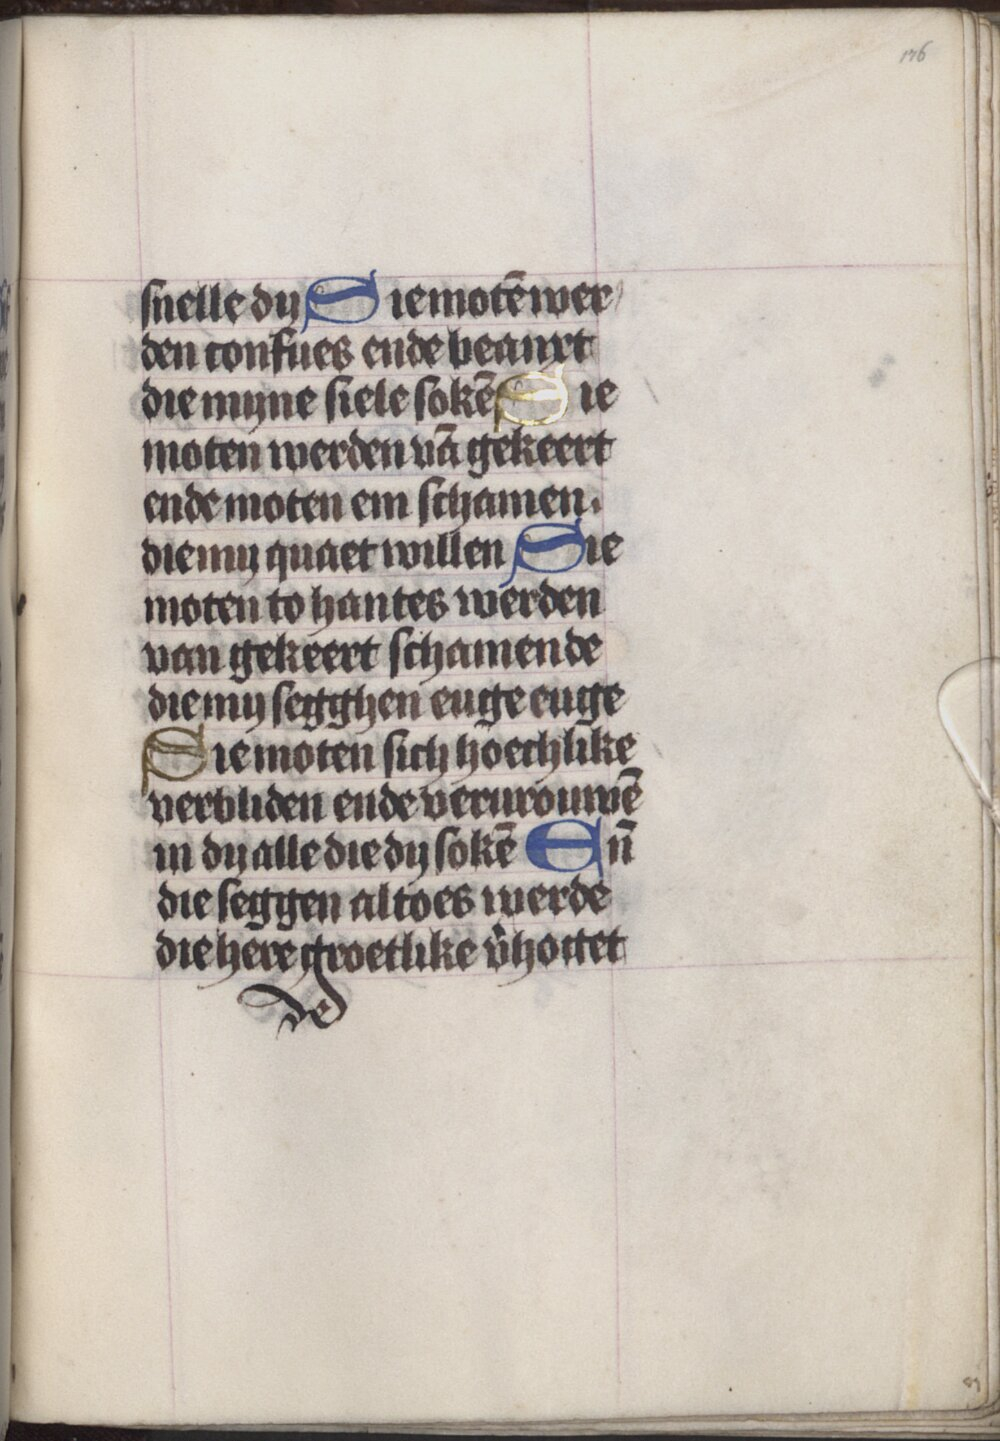 176
snelle dy Sie motē wer
den confues ende beanxt
die myne siele sokē Sie
moten werden vā gekeert
ende moten em schamen.
die my quaet willen Sie
moten to hantes werden
van gekeert schamende
die my segghen euge euge
Sie moten sich hoechlike
verbliden ende vervrouwē
in dy alle die dy sokē Eñ
die seggen altoes werde
die here groetlike v̄hoget
de